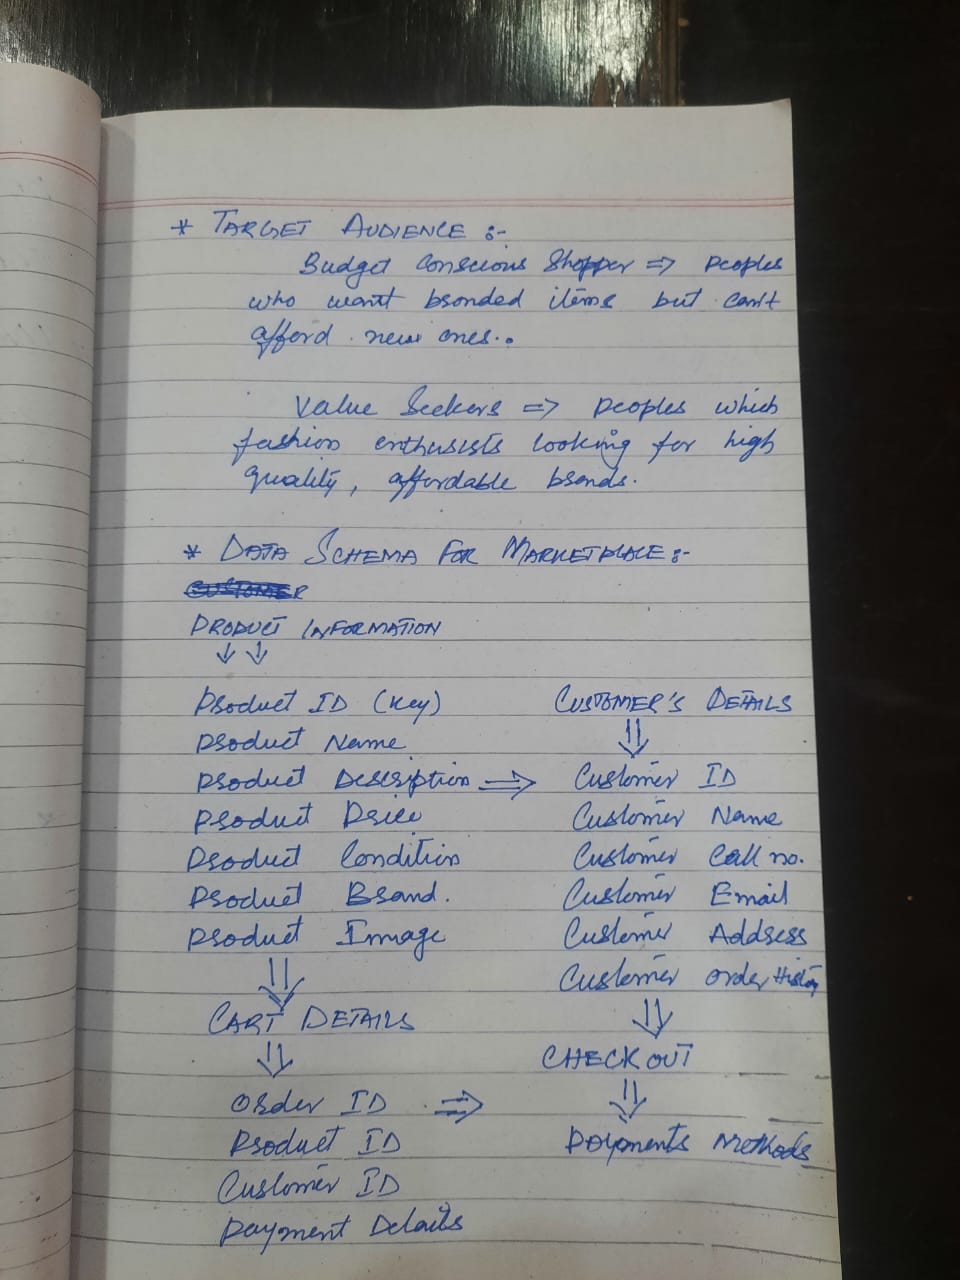 * TARGET AUDIENCE :-
Budget Conscious Shopper => peoples
who want branded items but can't
afford new ones..
Value Seekers => peoples which
fashion enthusists looking for high
quality, affordable brands.
* DATA SCHEMA FOR MARKETPLACE:-
CUSTOMER
PRODUCT INFORMATION
Product ID (Key)
Product Name
Product Description =>
Product Price
Product Condition
Product Brand.
Product Image
CART DETAILS
Order ID =>
Product ID
Customer ID
Payment Details
CUSTOMER'S DETAILS
Customer ID
Customer Name
Customer Call no.
Customer Email
Customer Address
Customer order History
CHECK OUT
Payments Methods